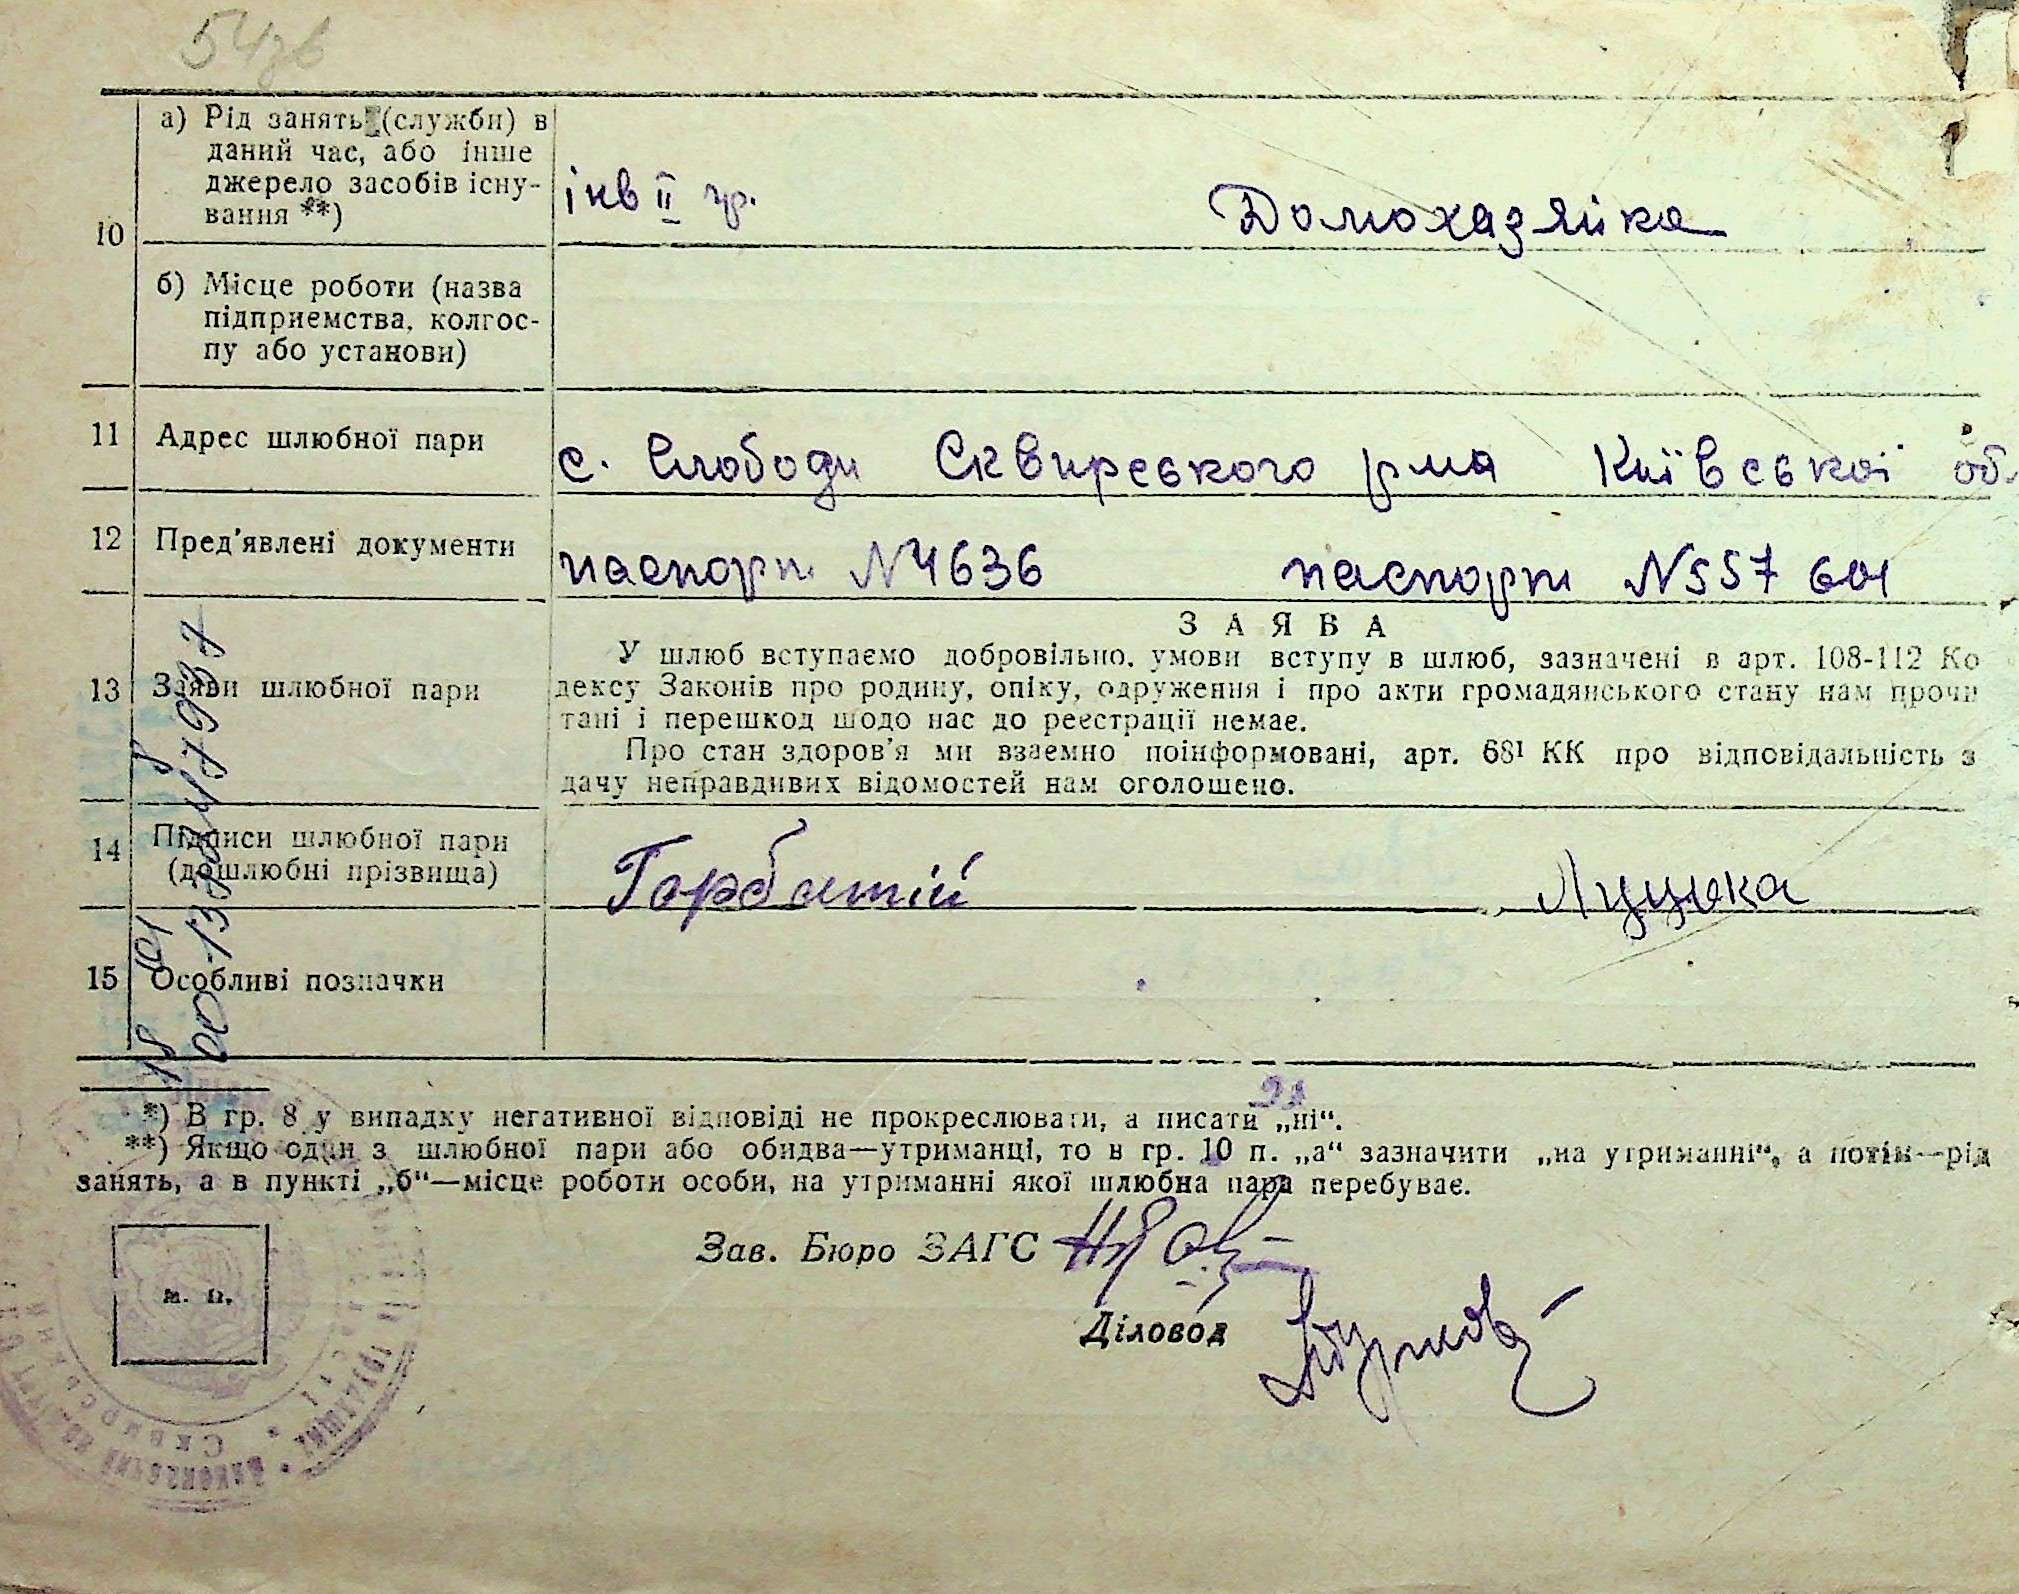 54зв
а) Рід занять (служби) в
даний час, або інше
джерело засобів існу-
вання **)
10
інв II гр.
Домохазяйка
б) Місце роботи (назва
підприємства, колгос-
пу або установи)
11 Адрес шлюбної пари
с. Слободи Сквирського р-на Київської об.
12 Пред'явлені документи
паспорт №4636 паспорт №557 601
13 Заяви шлюбної пари
ЗАЯВА
У шлюб вступаємо добровільно, умови вступу в шлюб, зазначені в арт. 108-112 Ко
дексу Законів про родину, опіку, одруження і про акти громадянського стану нам прочи
тані і перешкод щодо нас до реєстрації немає.
Про стан здоров'я ми взаємно поінформовані, арт. 68¹ КК про відповідальність з
дачу неправдивих відомостей нам оголошено.
14 Підписи шлюбної пари
(дошлюбні прізвища)
Горбатій Луцька
15 Особливі позначки
*) В гр. 8 у випадку негативної відповіді не прокреслювати, а писати „ні“.
**) Якщо один з шлюбної пари або обидва—утриманці, то в гр. 10 п. „а“ зазначити „на утриманні“, а потім—рід
занять, а в пункті „б“—місце роботи особи, на утриманні якої шлюбна пара перебуває.
Зав. Бюро ЗАГС
м. п.
Діловод